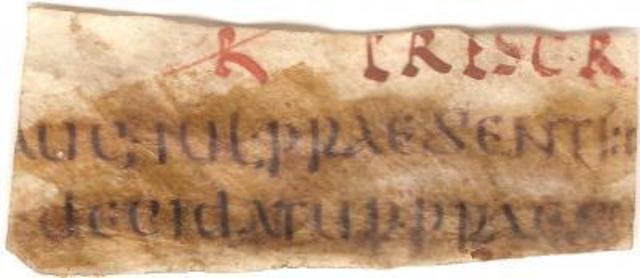 R PRISC·R
AUG·IUL·PRAESENTI
decidatur·praes